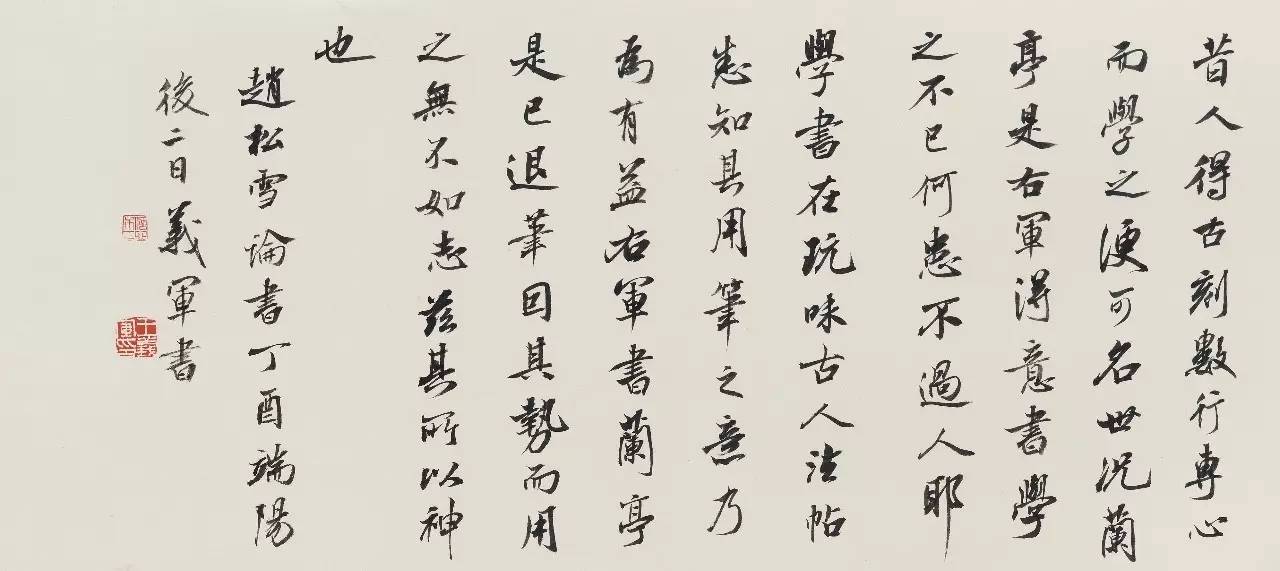 昔人得古刻數行專心
而學之便可名世況蘭
亭是右軍得意書學
之不已何患不過人耶
學書在玩味古人法帖
悉知其用筆之意乃
為有益右軍書蘭亭
是已退筆因其勢而用
之無不如志茲其所以神
也
趙松雪論書丁酉端陽
後二日義軍書